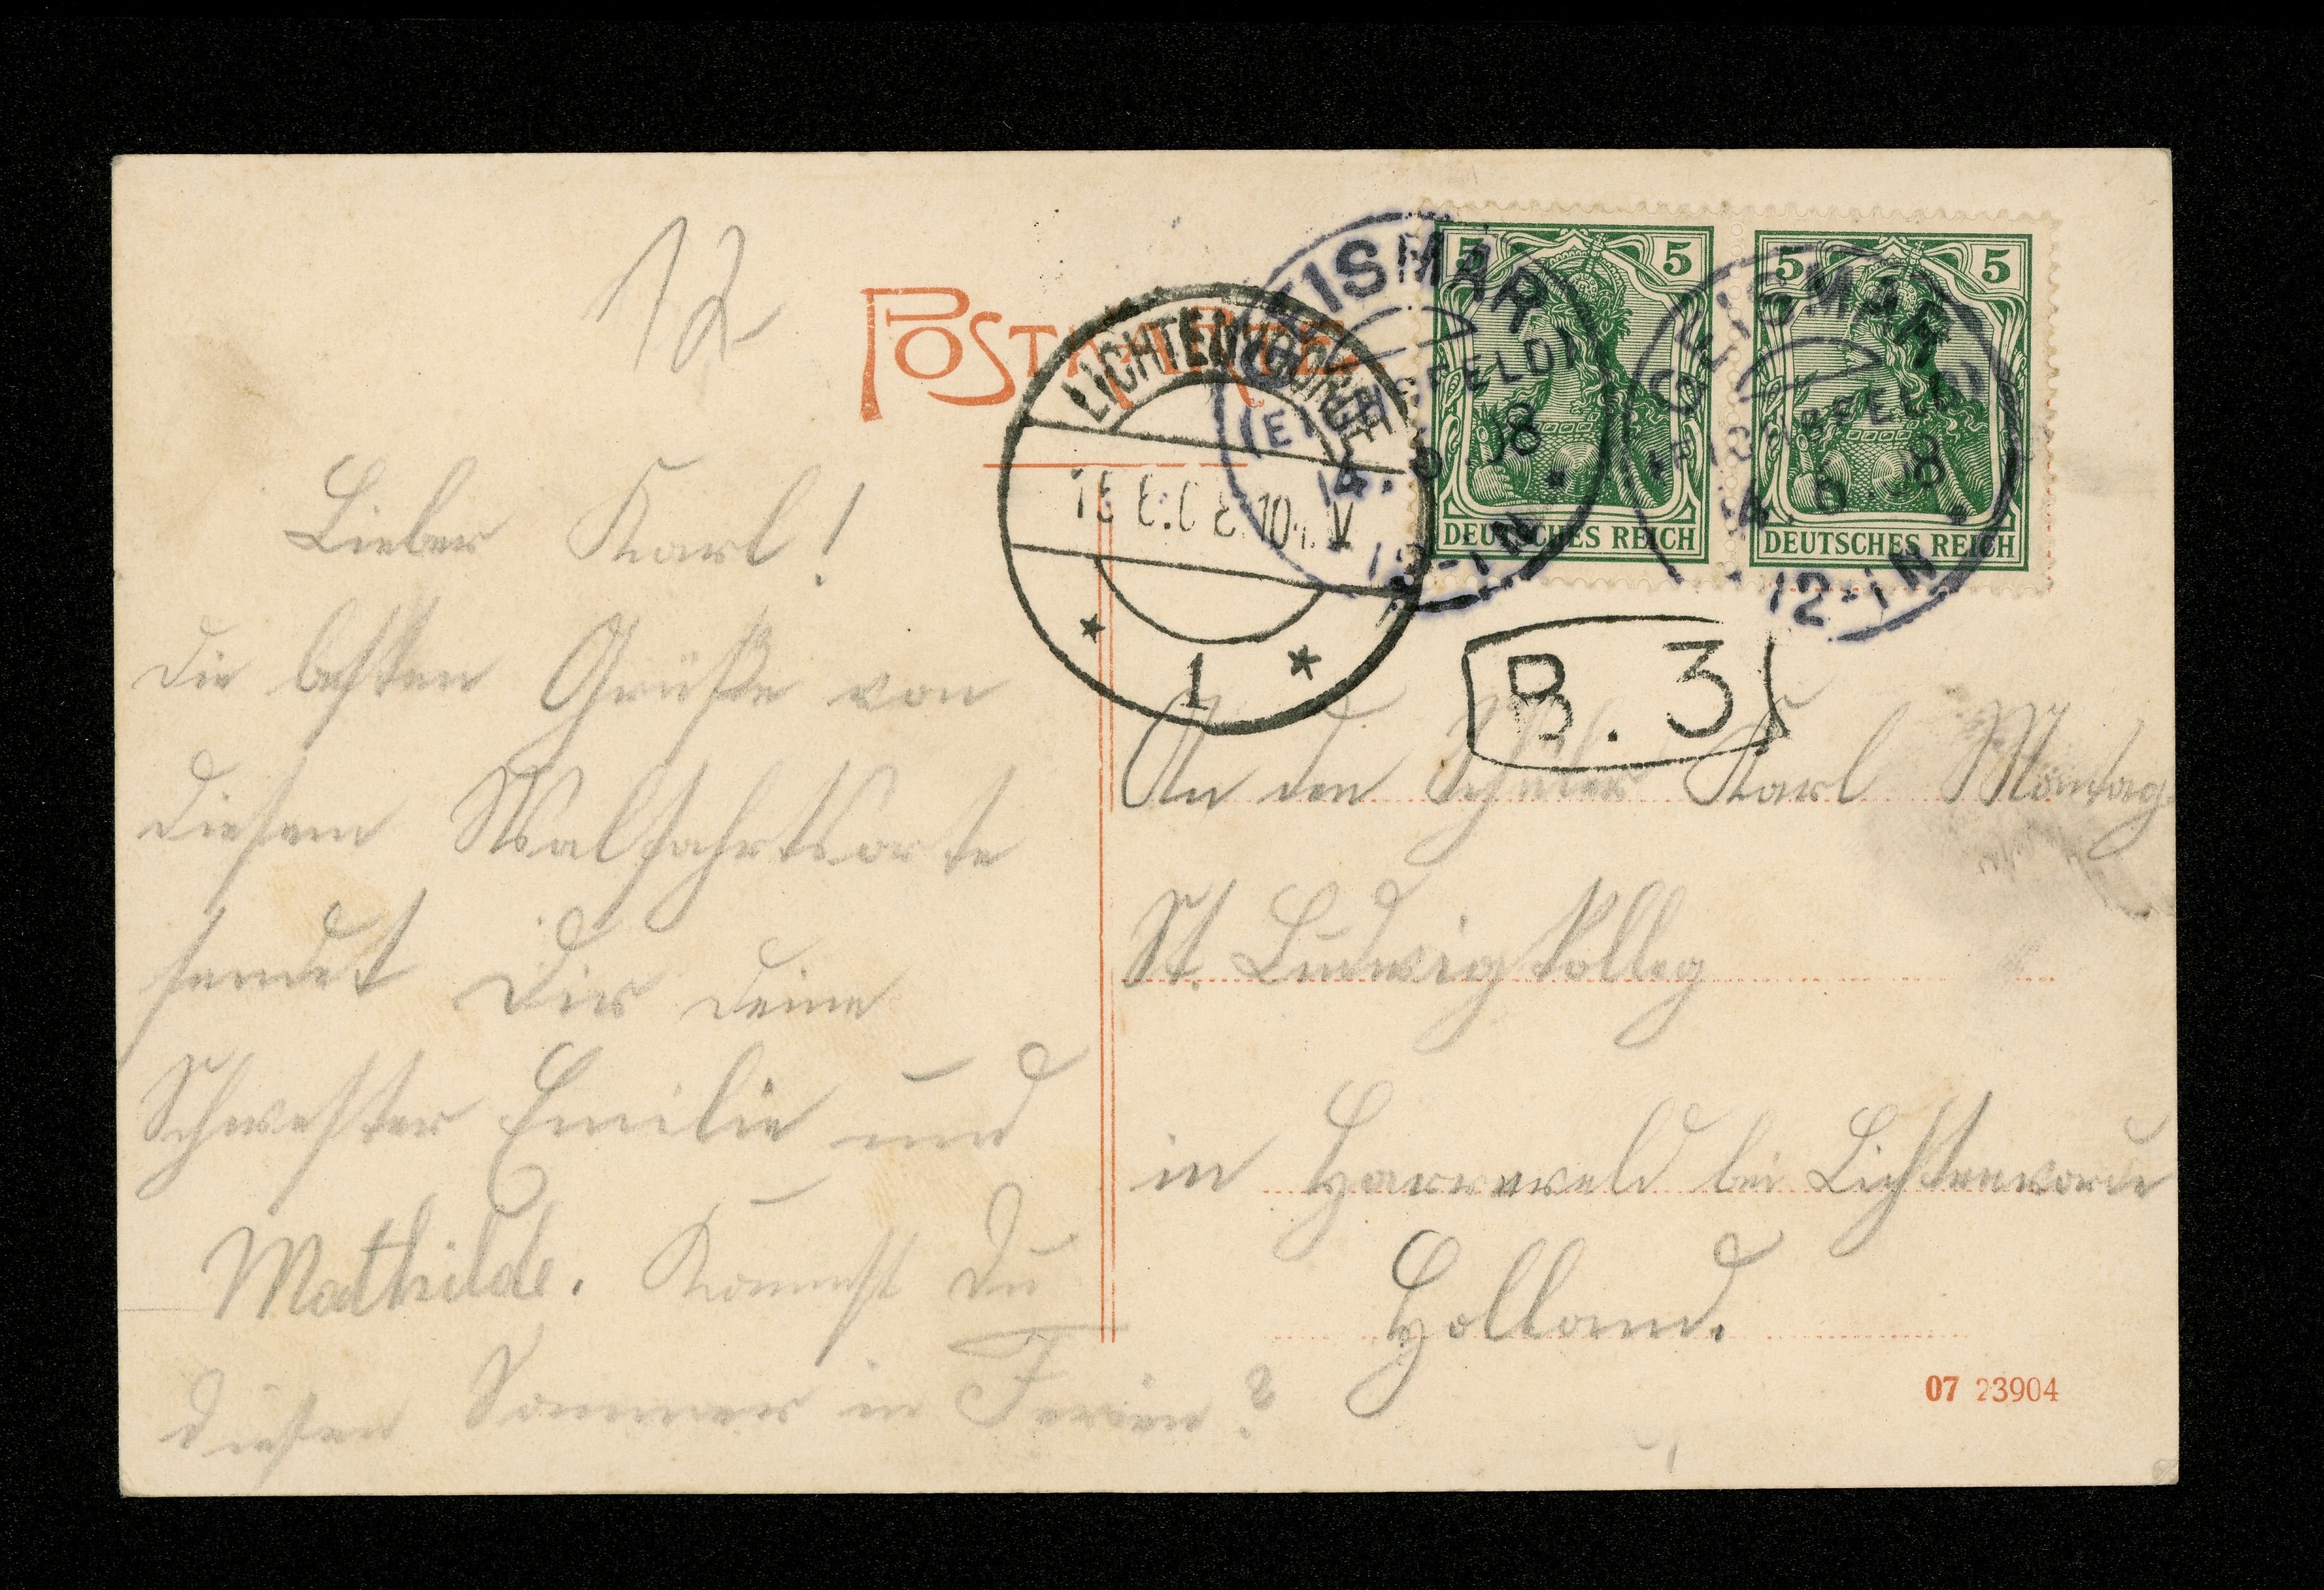 12
POSTKARTE
LICHTENVOORDE
15 6.08 10-11 V
1
GEISMAR
(EICHSFELD)
14. 6. 08
12-1N
5 5
DEUTSCHES REICH
GEISMAR
(EICHSFELD)
14. 6. 08
12-1N
5 5
DEUTSCHES REICH
B. 3
Lieber Karl!
die besten Grüße von
diesem Walfahrtsorte
sendet Dir deine
Schwester Emilie und
Mathilde. Kommst Du
diesen Sommer in Ferien?
An den Schüler Karl Montag
St. Ludwig Kolleg
in Harreveld bei Lichtenvorde
Holland.
07 23904